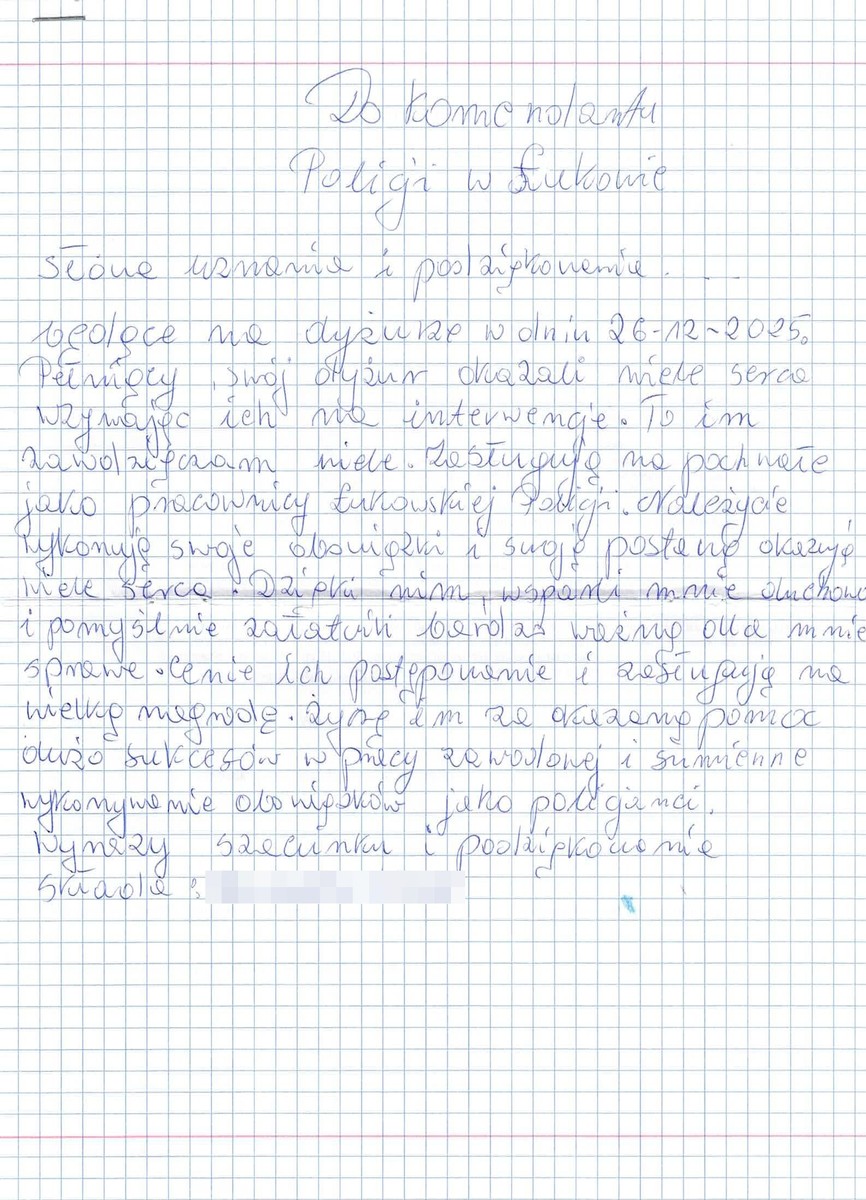 Do komendantu
Policji w Łukowie
Słowa uznania i podziękowania. . . .
będące na dyżurze w dniu 26-12-2025.
Pełniący swój dyżur okazali wiele serca
wzywając ich na interwencje. To im
zawdzięczam wiele. Zasługują na pochwałe
jako pracownicy Łukowskiej Policji. Należycie
wykonują swoje obowiązki i swoją postawą okazują
wiele serca. Dzięki nim, wsparli mnie duchowo
i pomyślnie załatwili bardzo ważną dla mnie
sprawe. Cenie ich postępowanie i zasługują na
wielką nagrodę. Życzę im za okazaną pomoc
dużo sukcesów w pracy zawodowej i sumienne
wykonywanie obowiązków jako policjanci.
Wyrazy szacunku i podziękowanie
składa :